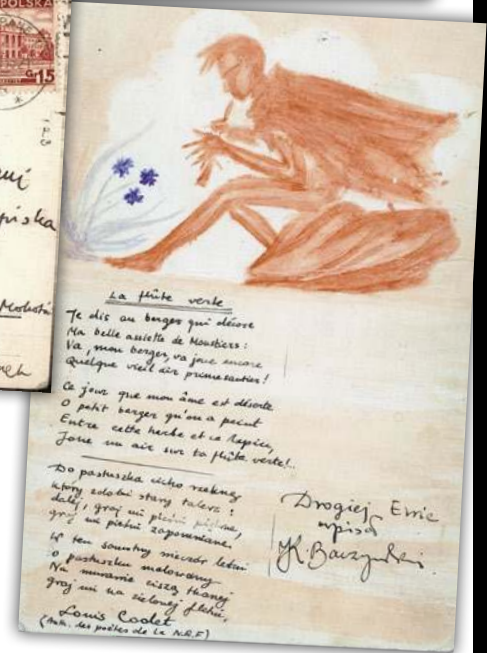 POLSKA
15
La flûte verte
Je dis au berger qui décore
Ma belle assiette de Moustiers:
Va, mon berger, va joue encore
Quelque vieil air primesautier!
Ce jour que mon âme est déserte
O petit berger qu'on a peint
Entre cette herbe et ce lapin,
Joue un air sur ta flûte verte!..
Do pastuszka cicho szeknę
który zdobi stary talerz:
dalej, graj mi pieśni piękne,
graj mi pieśni zapomniane.
W ten smutny wieczór letni
o pastuszku malowany
Na murawie ciszą tkanej
graj mi na zielonej fletni.
Louis Codet
(Anth. des poètes de la N.R.F)
Drogiej Ewie
wpisał
K. Baczyński